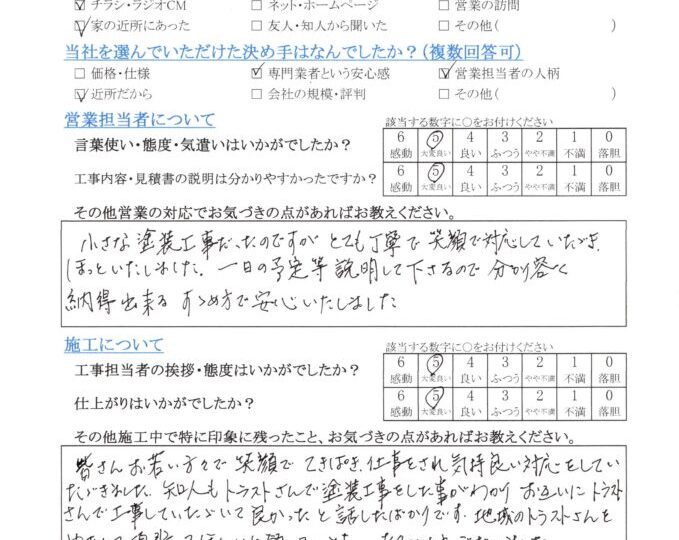 ☑ チラシ・ラジオCM □ ネット・ホームページ □ 営業の訪問
☑ 家の近所にあった □ 友人・知人から聞いた □ その他( )
当社を選んでいただけた決め手はなんでしたか？(複数回答可)
□ 価格・仕様 ☑ 専門業者という安心感 ☑ 営業担当者の人柄
☑ 近所だから □ 会社の規模・評判 □ その他( )
営業担当者について 該当する数字に○をお付けください
言葉使い・態度・気遣いはいかがでしたか？ 6 感動 5 大変良い 4 良い 3 ふつう 2 やや不満 1 不満 0 落胆
工事内容・見積書の説明は分かりやすかったですか？ 6 感動 5 大変良い 4 良い 3 ふつう 2 やや不満 1 不満 0 落胆
その他営業の対応でお気づきの点があればお教えください。
小さな塗装工事だったのですが とても丁寧で 笑顔で対応していただき、
ほっといたしました。一日の予定等 説明して下さるので 分かり容く
納得出来る すゝめ方で安心いたしました
施工について 該当する数字に○をお付けください
工事担当者の挨拶・態度はいかがでしたか？ 6 感動 5 大変良い 4 良い 3 ふつう 2 やや不満 1 不満 0 落胆
仕上がりはいかがでしたか？ 6 感動 5 大変良い 4 良い 3 ふつう 2 やや不満 1 不満 0 落胆
その他施工中で特に印象に残ったこと、お気づきの点があればお教えください。
皆さんお若い方々で 笑顔で てきぱき 仕事をされ 気持良い対応をしてい
ただきました。知人もトラストさんで塗装工事をした事がわかり お互いにトラスト
さんで工事していただいて良かったと話したばかりです。地域のトラストさんを